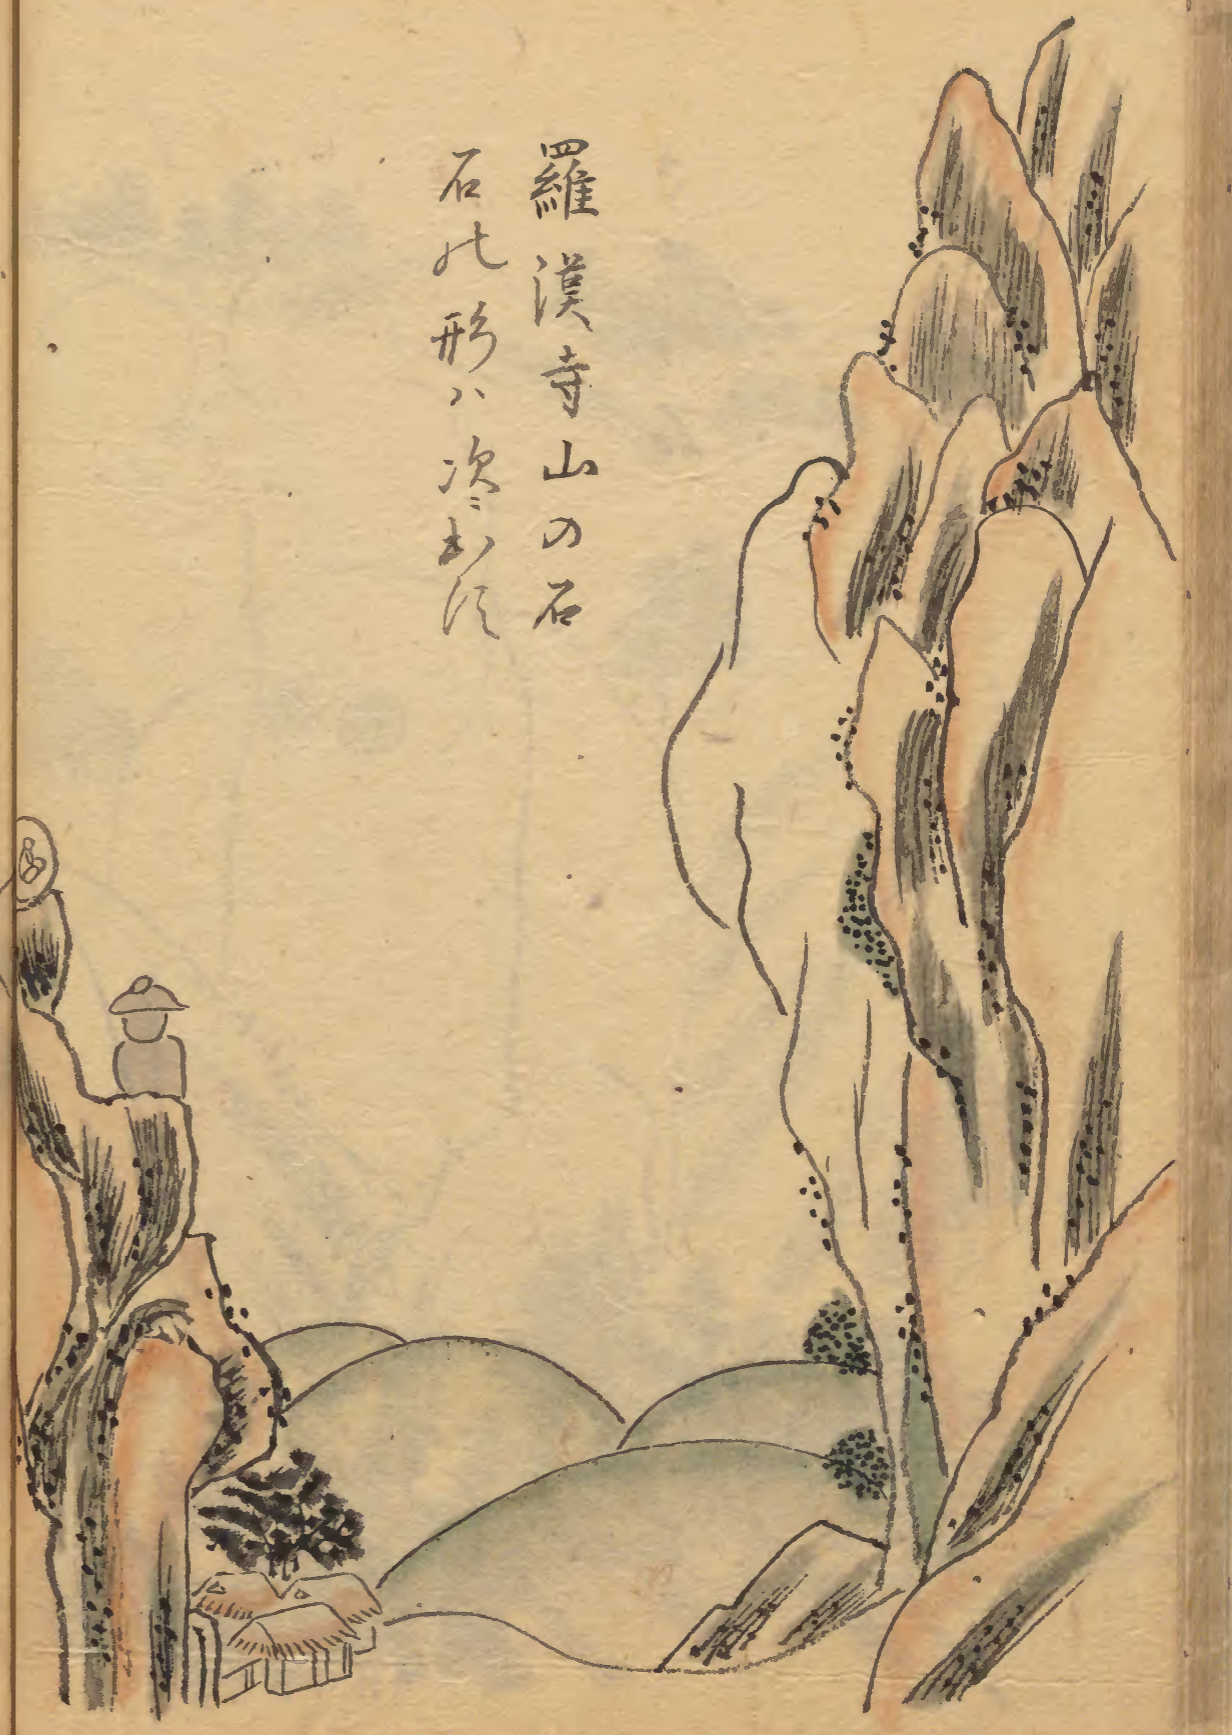 羅漢寺山の石
石の形ハ次ニ出ス